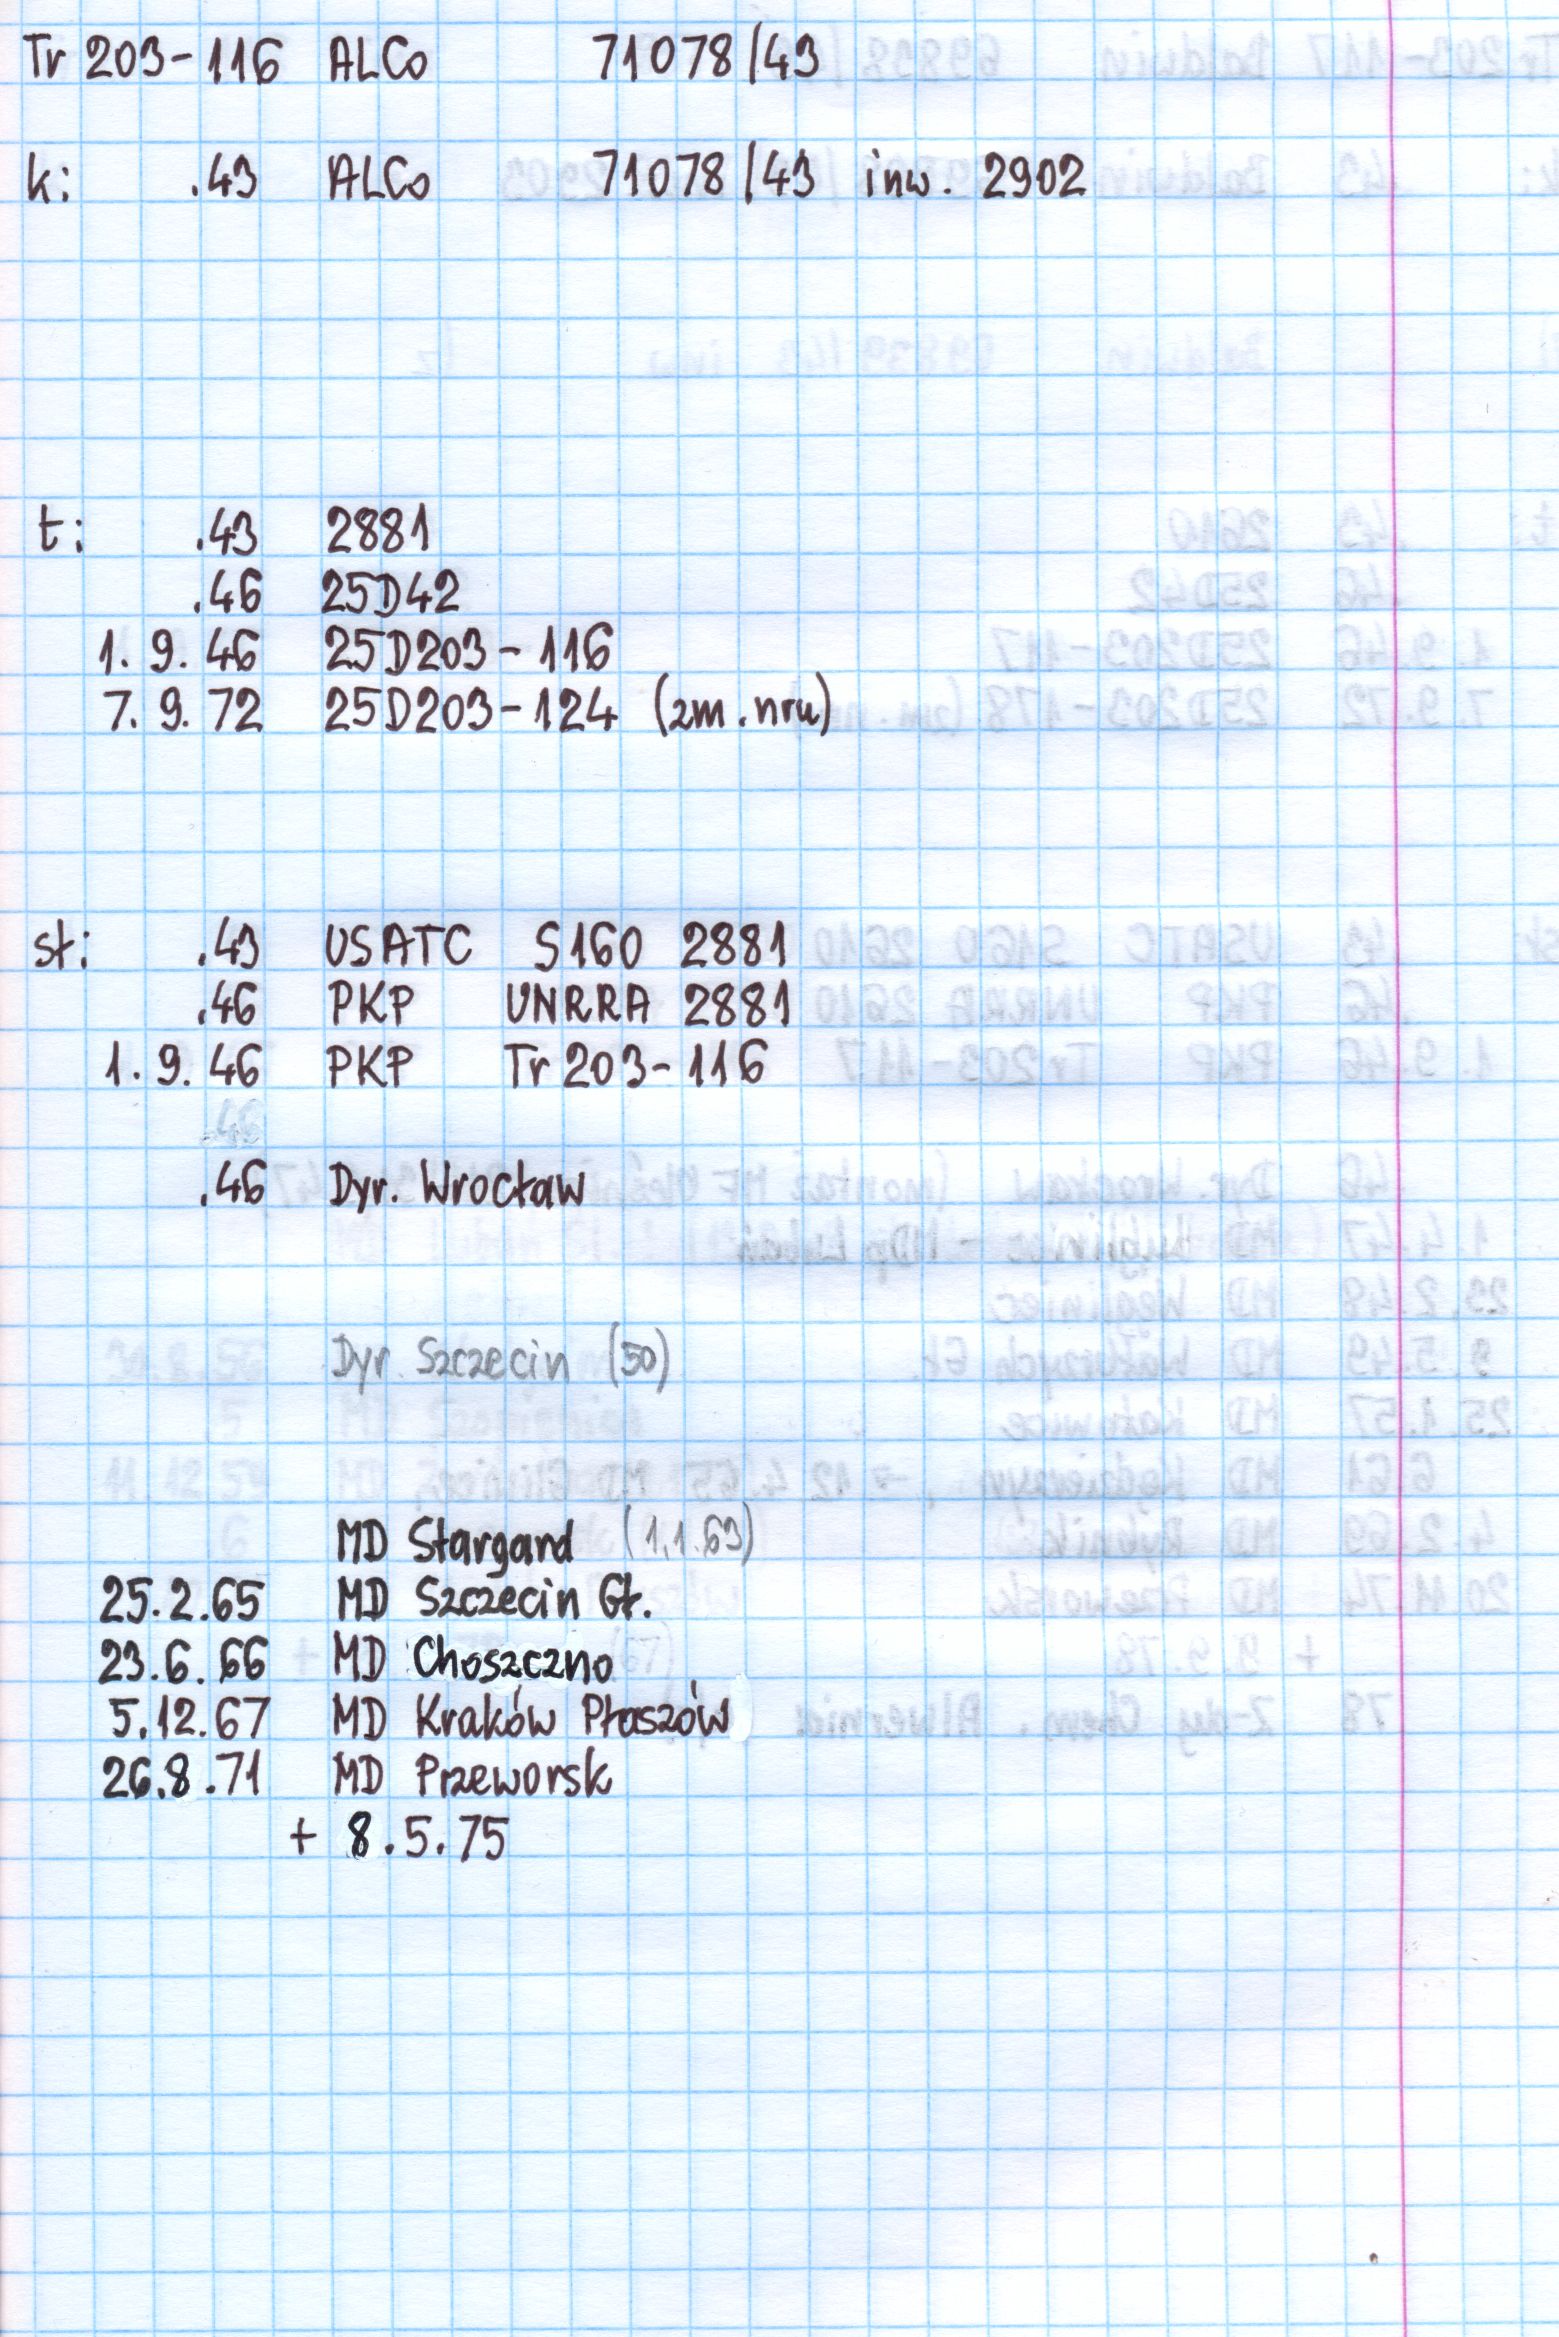 Tr 203-116 ALCo 71078/43
k: .43 ALCo 71078/43 inw. 2902
t: .43 2881
.46 25D42
1.9.46 25D203-116
7.9.72 25D203-124 (zm.nru)
st: .43 USATC S160 2881
.46 PKP UNRRA 2881
1.9.46 PKP Tr 203-116
.46
.46 Dyr. Wrocław
Dyr. Szczecin (50)
MD Stargard (1.1.63)
25.2.65 MD Szczecin Gł.
23.6.66 MD Choszczno
5.12.67 MD Kraków Płaszów
26.8.71 MD Przeworsk
+ 8.5.75